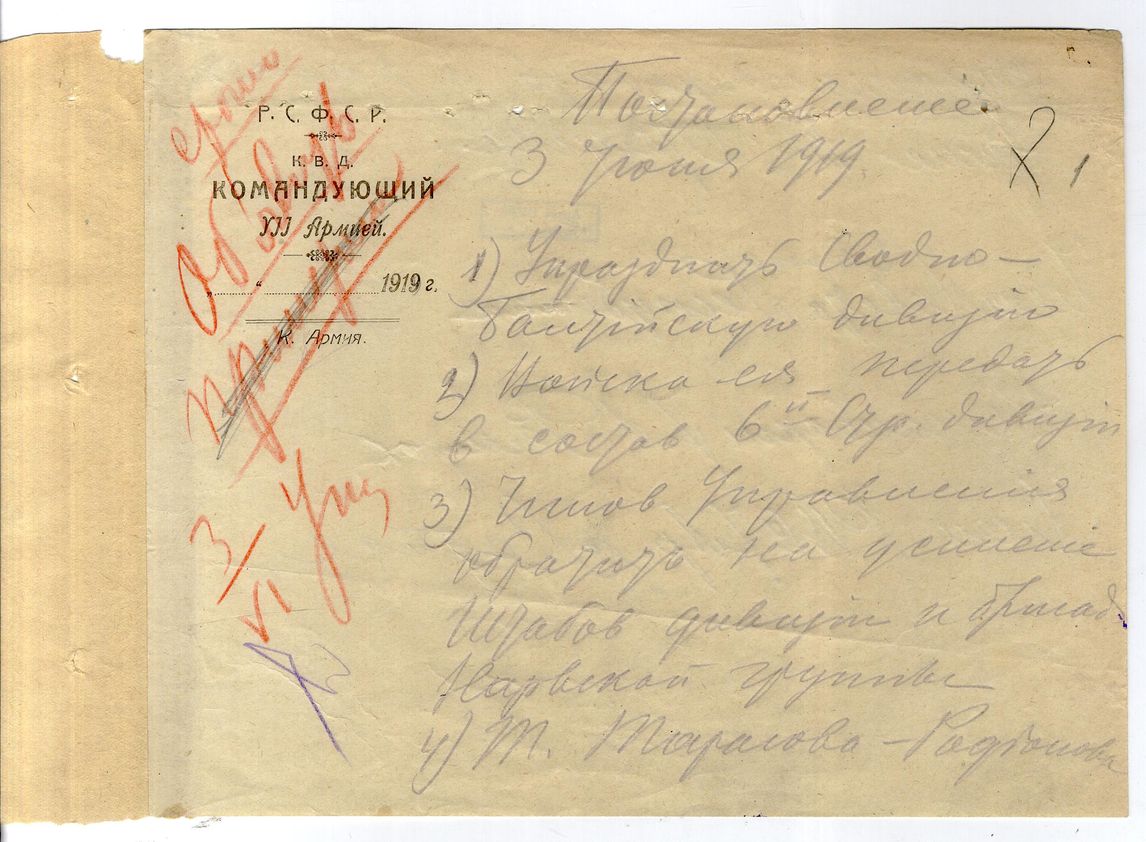 Р. С. Ф. С. Р.
К. В. Д.
КОМАНДУЮЩИЙ
VII Армией.
„ “ 1919 г.
К. Армия.
срочно
3/VI
1
Постановление
3 июня 1919.
1) Упразднить Сводно-
Балтийскую дивизию
2) Войска ея передать
в состав 6й Стр. дивизии
3) Чинов Управления
обратить на усиление
Штабов дивизии и бригад
Нарвской группы
4) Т. Тарасова-Родионова